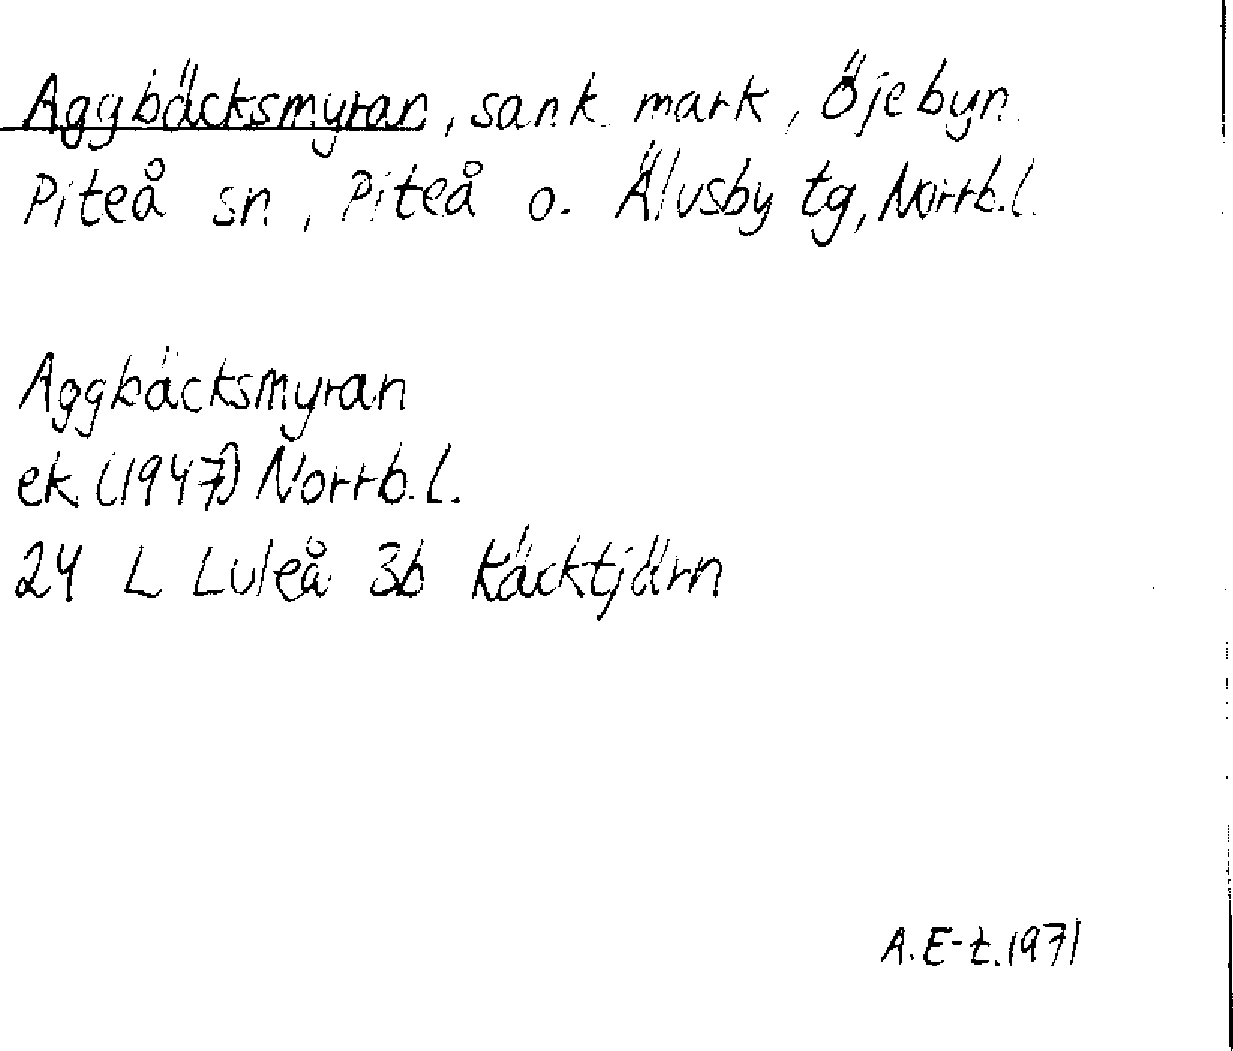 Aggbäcksmyran, sank mark, Öjebyn
Piteå sn, Piteå o. Älvsby tg, Norrb.l.
Aggbäcksmyran
ek (1947) Norrb.l.
24 L Luleå 3b Käcktjärn
A.E-t.1971